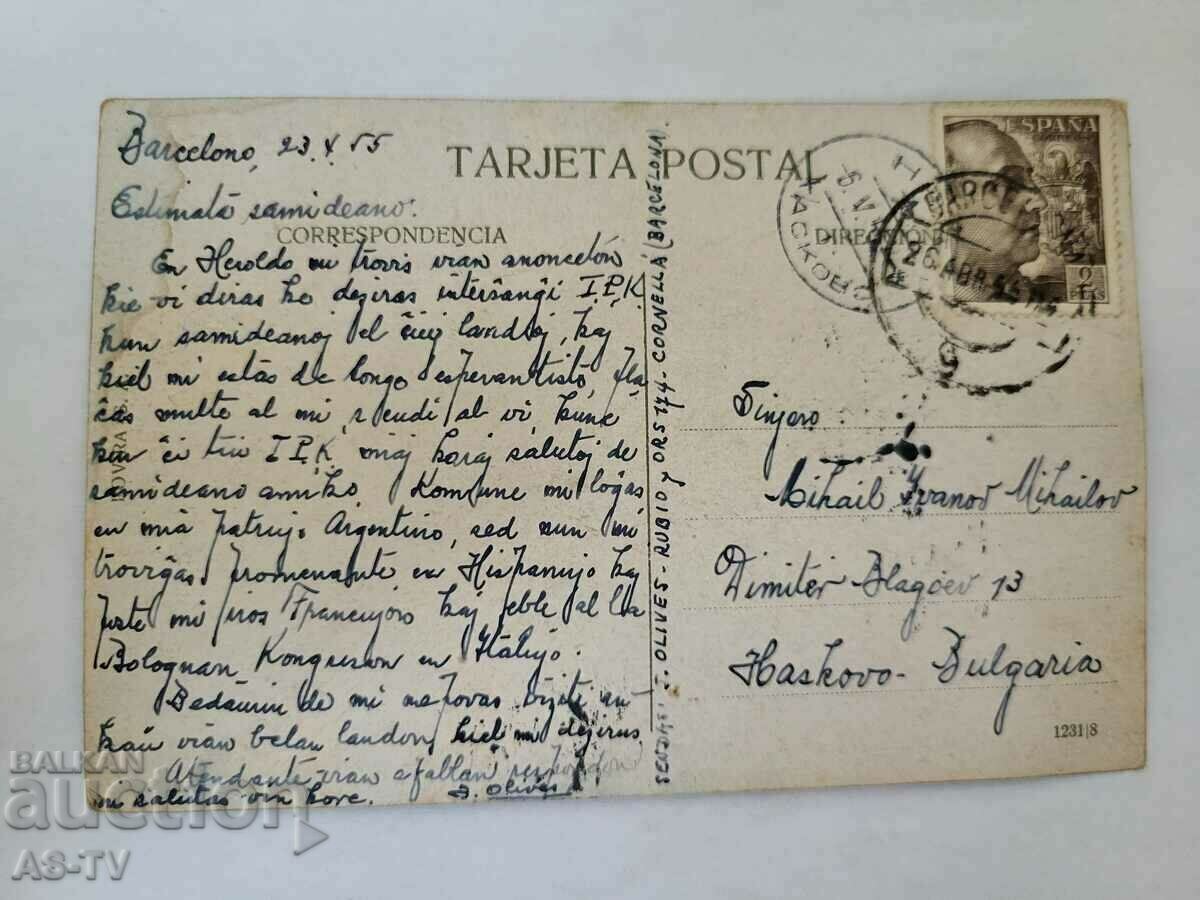 Barcelono, 23.4.55
TARJETA POSTAL
Estimata samideano.
CORRESPONDENCIA
En Heroldo mi trovis vian anonceton
kie vi diras ke deziras interŝanĝi I.P.K
kun samideanoj el ĉiuj landoj, kaj
kiel mi estas de longe esperantisto, pla
ĉas multe al mi, sendi al vi, kune
kun ĉi tiu I.P.K, miaj koraj salutoj de
samideano amiko. Komune mi loĝas
en mia patrujo Argentino, sed nun mi
troviĝas promenante en Hispanujo kaj
poste mi iros Francujon kaj eble al la
Bolognan Kongreson en Italujo.
Bedaŭrinde mi ne povas viziti an
kaŭ vian belan landon, kiel mi dezirus
Atendante vian afablan respondon
mi salutas vin kore. J. Olives
J. OLIVES-RUBIO y ORS 174-CORNELLÁ (BARCELONA)
DIRECCIÓN
ХАСКОВО
BARCELONA
26 ABR 55
ESPAÑA
2
PTAS
Sinjoro
Mihail Ivanov Mihailov
Dimiter Blagoev 13
Haskovo-Bulgaria
1231/8
BALKAN
auction
AS-TV